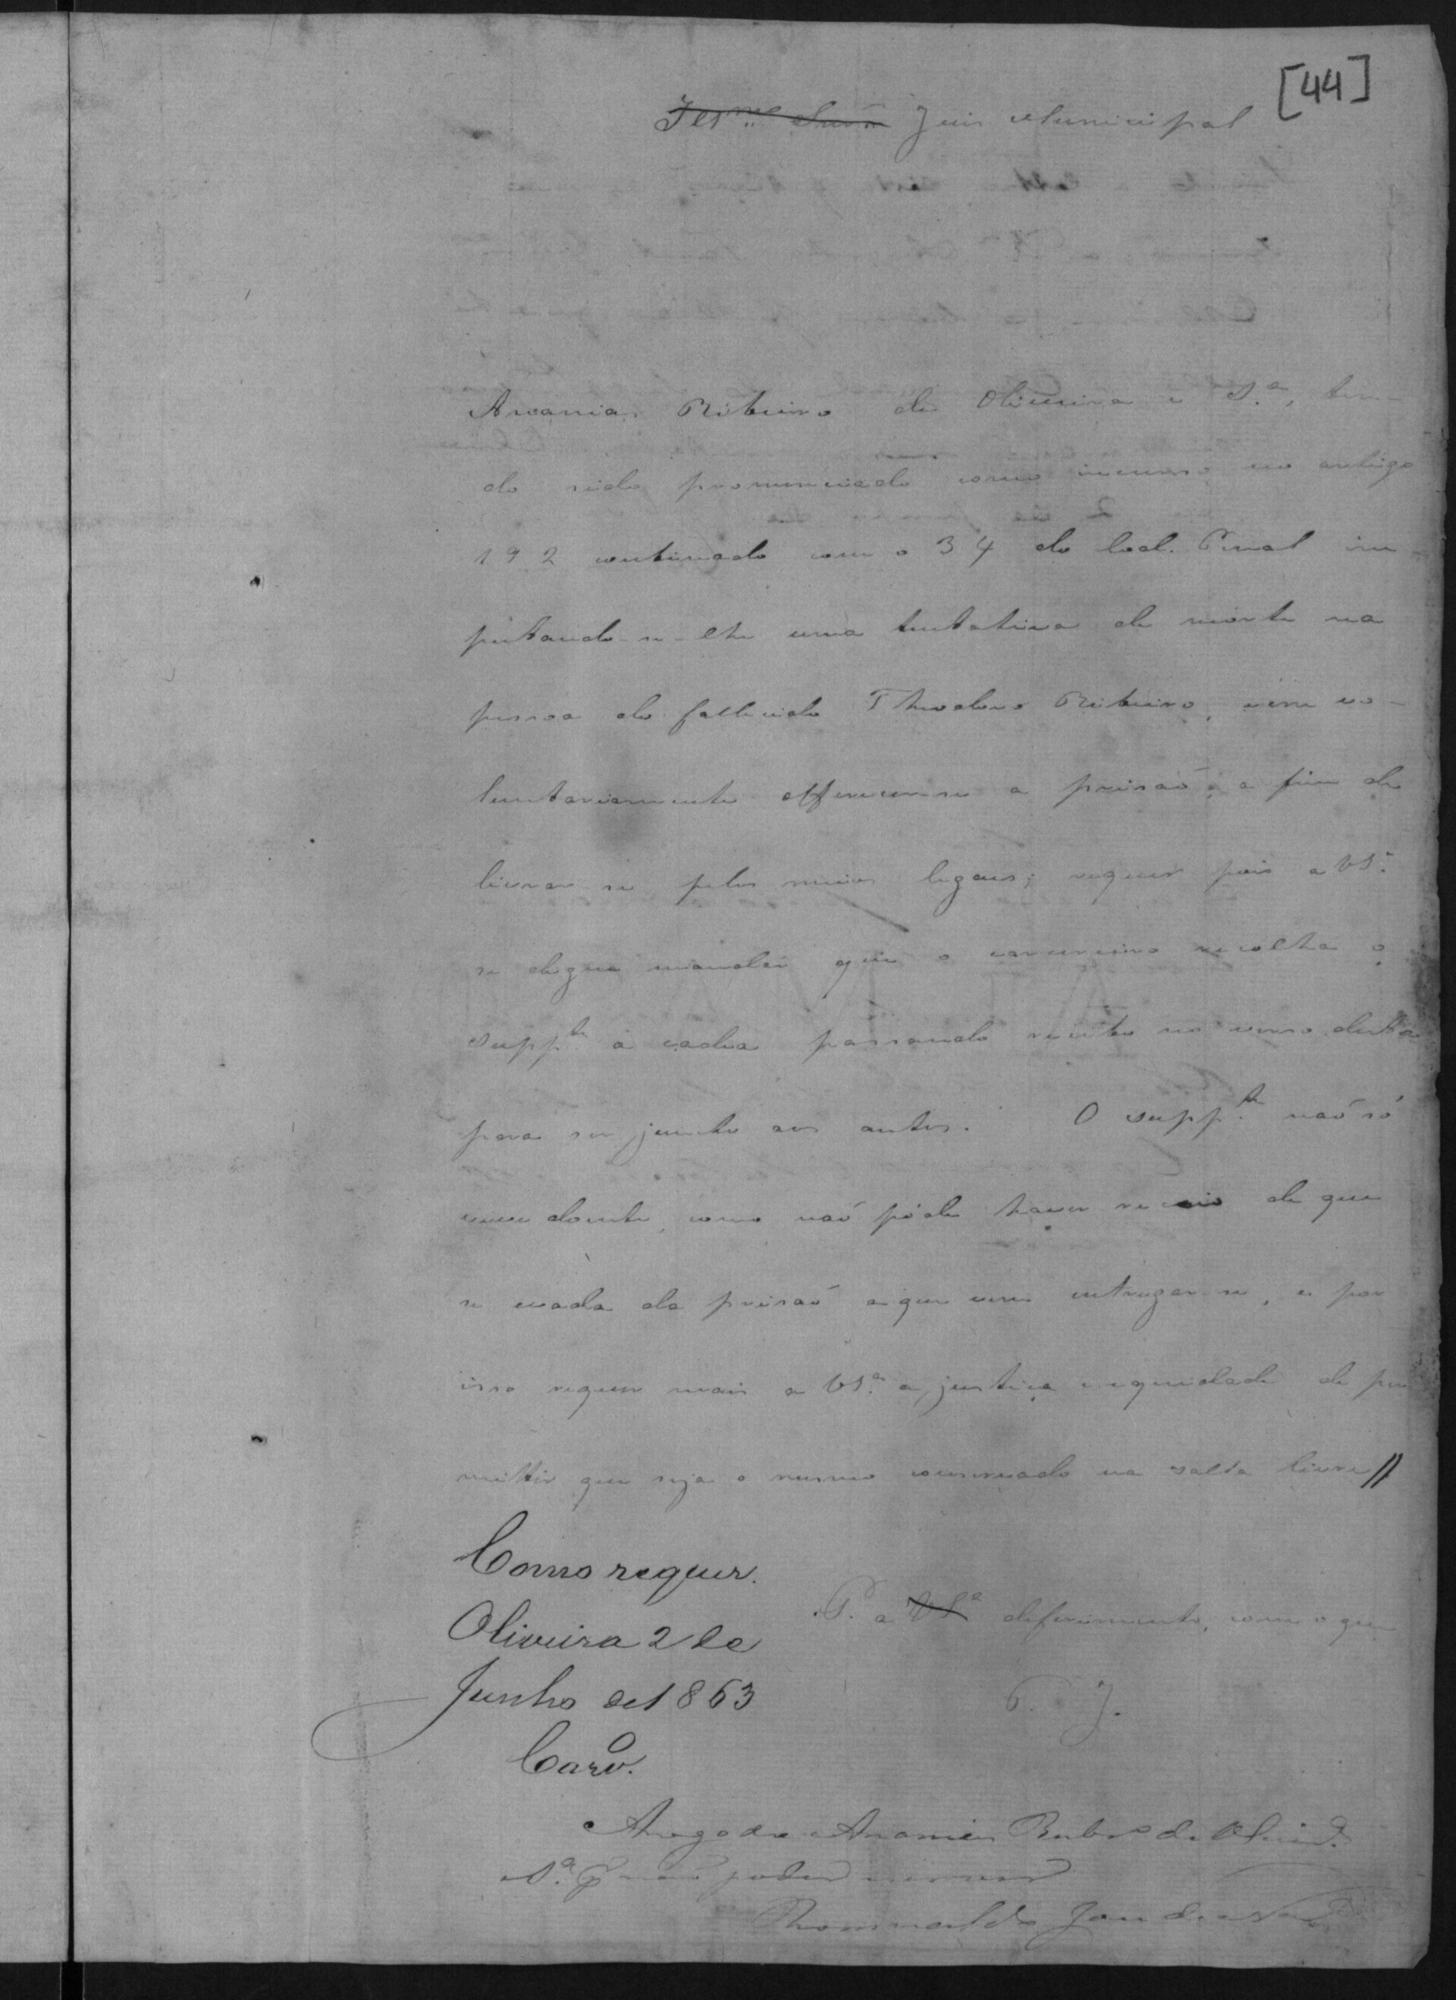 [44]
Illmo Senr Juis Municipal
Ananias Ribeiro de Oliveira e Sa, ten-
do sido pronunciado como incurso no artigo
192 conbinado com o 34 do Cod. Penal im
putando-se-lhe uma tentativa de morte na
pessoa do fallecido Theodoro Ribeiro, vem vo-
luntariamente offerecerse a prisaõ, a fim de
livrar se pelos meios legaes; requer pois a VSa
se digne mandar que o carcereiro recolha o
suppte a cadea passando recibo no verso desta
para ser junto aos autos. O suppte naõ só
vive doente, como naõ póde haver receio de que
se evada da prisaõ a que vem entregar-se, e por
isso requer mais a VSa a justiça e equidade de per
mittir que seja o mesmo conservado na salla livre //
Como requer.
Oliveira 2 de
Junho de 1863
Caro.
P. a VSa deferimento, com o que
J.
Arogo de Ananias Ribro de Olivra
Sa p naõ poder
Romualdo